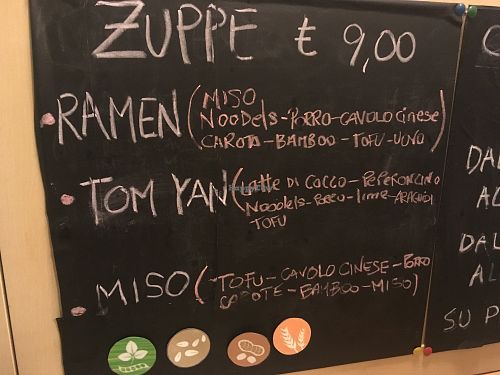 ZUPPE € 9,00
RAMEN (MISO
NOODELS-PORRO-CAVOLO CINESE
CAROTA-BAMBOO-TOFU-UOVO)
TOM YAN (LATTE DI COCCO-PEPERONCINO
NOODELS-PORRO-LIME-ARACHIDI
TOFU
MISO (TOFU-CAVOLO CINESE-PORRO
CAROTE-BAMBOO-MISO)
DAL
AL
DAL
AL
SU P